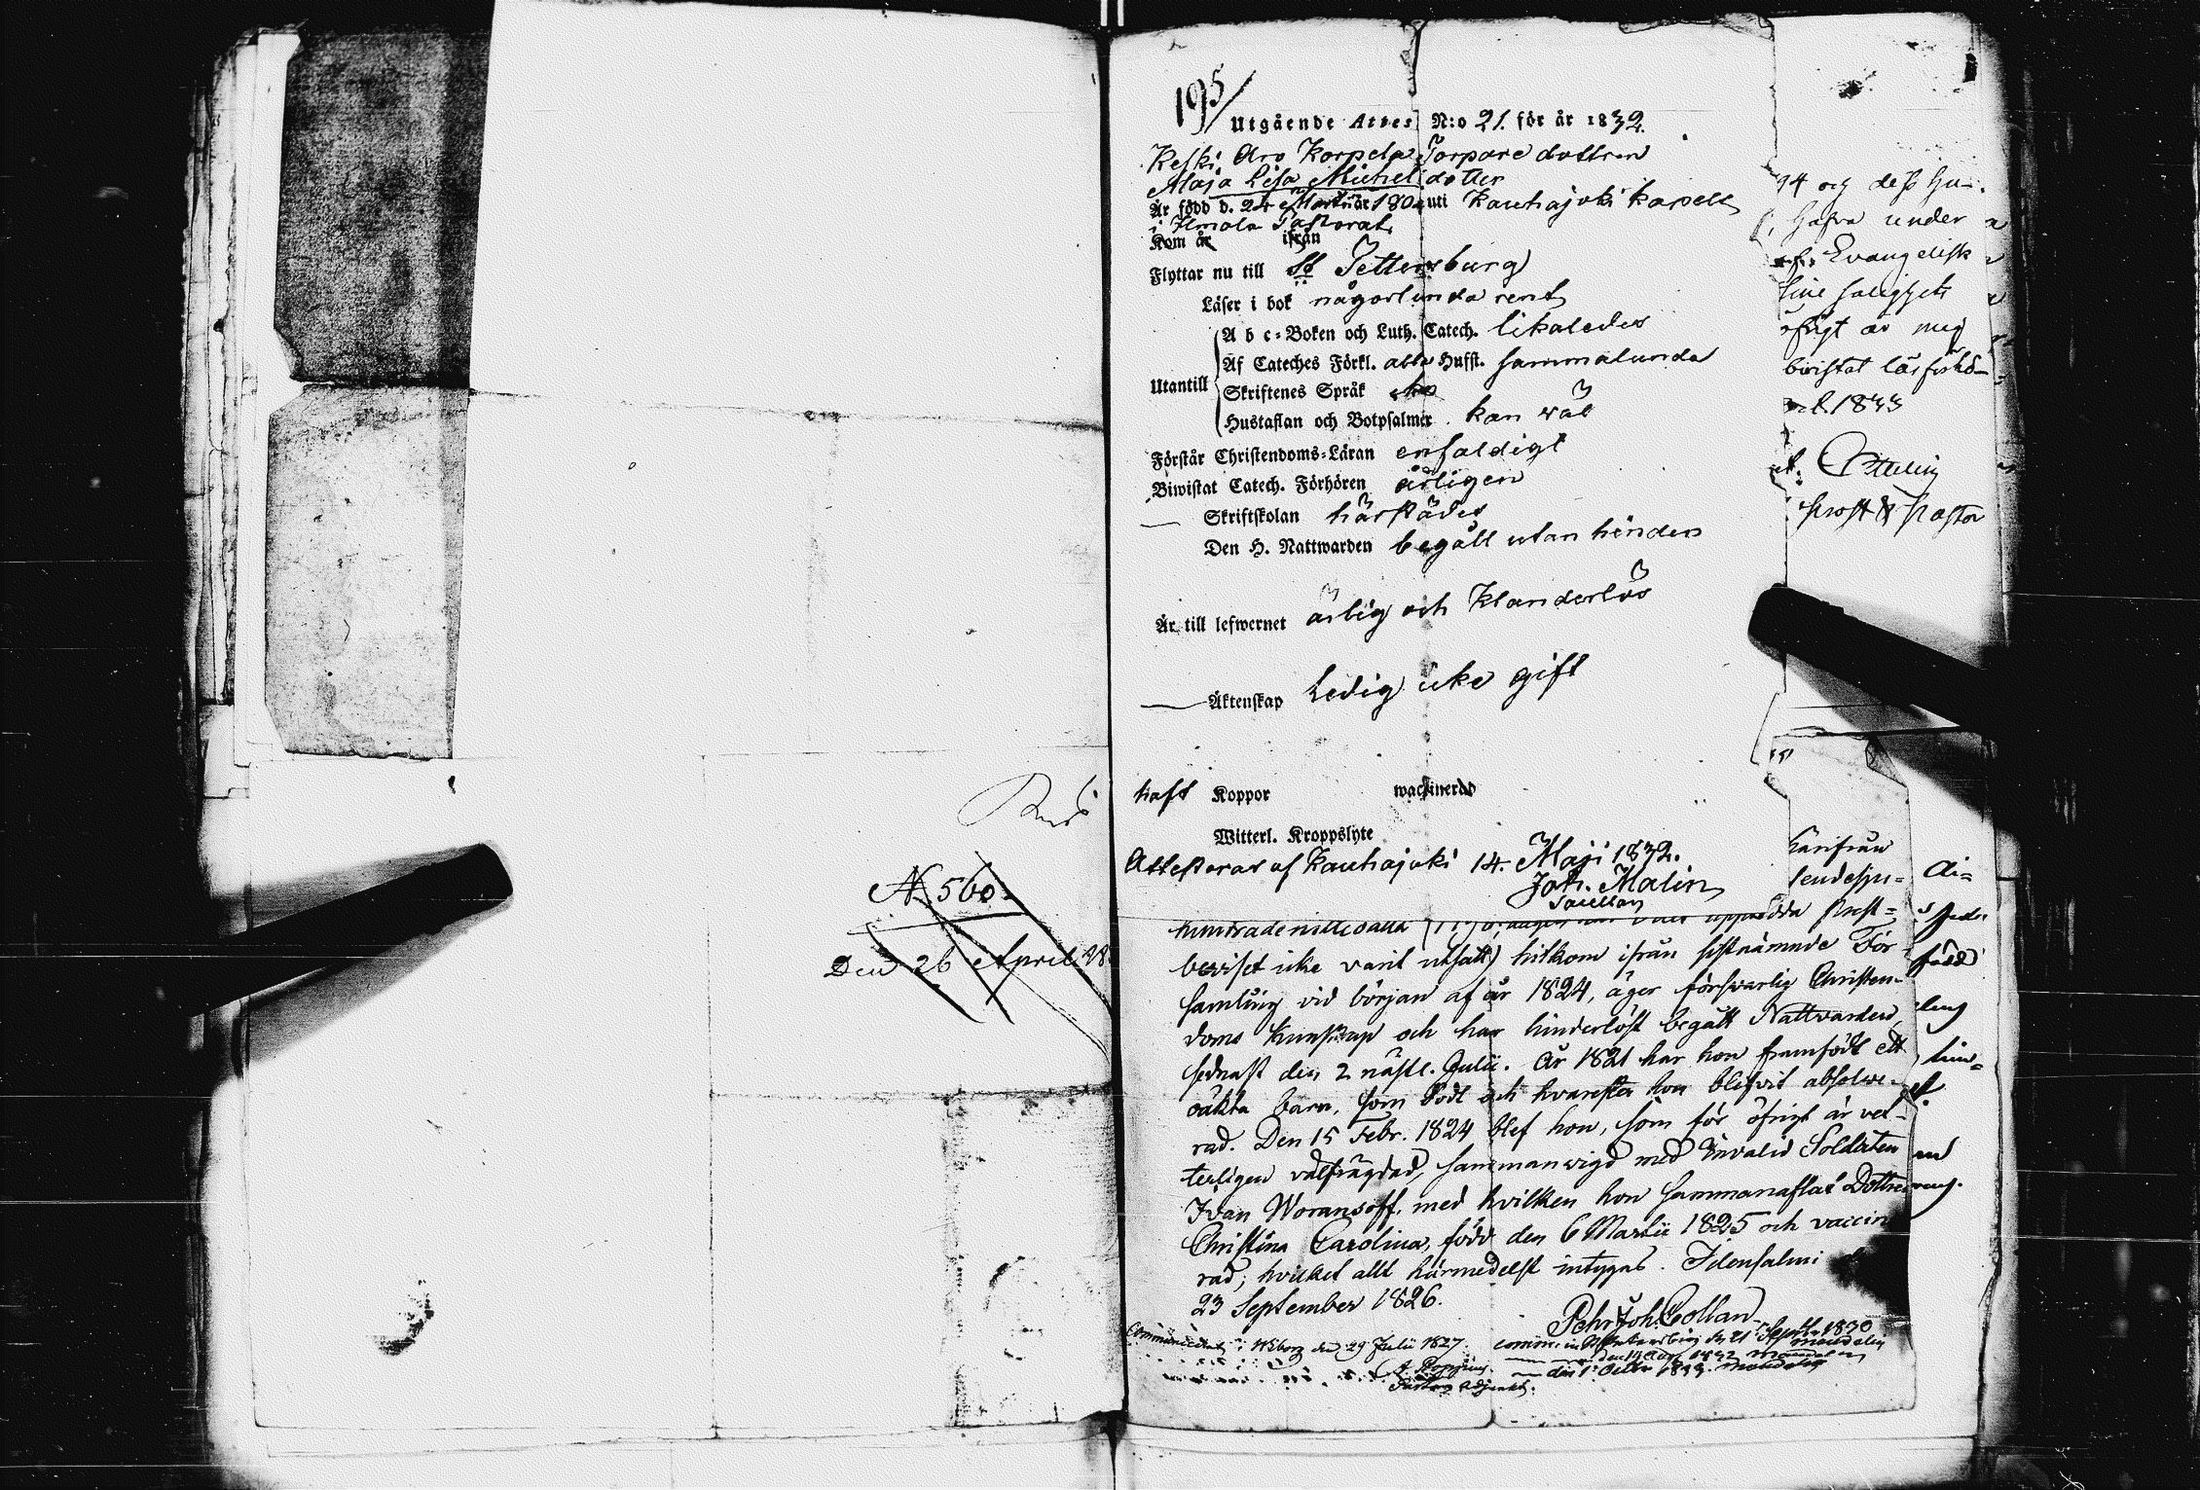 Rus
N 560.
Den 26 April 18
195/
Utgående Attest N:o 21. för år 1832.
Keski Aro Korpela Torpare dottren
Maja Lisa Michelsdotter
Är född d. 24 Martii år 180 uti Kauhajoki kapell
i Ilmola Pastorat.
Kom år ifrån
Flyttar nu till St Pettersburg
Läser i bok någorlunda rent
Utantill
A b c-Boken och Luth. Catech. likaledes
Af Cateches Förkl. alla Hufst. sammalunda
Skriftenes Språk
Hustaflan och Botpsalmer. kan wäl
Förstår Christendoms-Läran enfaldigt
Biwistat Catech. Förhören årligen
— Skriftskolan härstädes
Den H. Nattwarden begått utan hinder
Är till lefwernet ärlig och Klanderlös
— Äktenskap Ledig icke gift
haft Koppor waccinerad
Witterl. Kroppslyte
Attesteras af Kauhajoki 14. Maji 1832.
Joh. Malin
Sacellan
94 och dess
hafva under
Evangelisk
öfrigt av mig
bivistat läsförhö-
1833
Prost & Pastor
härifrån
bewiset icke varit utsatt) hitkom ifrån sistnämnde För-
samling vid början af år 1824, äger förswarlig Christen-
doms kunskap och har hinderlöst begått Nattvarden,
sednast den 2 nästl. Julii. År 1821 har hon framfödt ett
oäkta barn, som dödt och hvarefter hon blifvit absolve-
rad. Den 15 Febr. 1824 blef hon, som för öfrigt är vet-
terligen välfrägdad, sammanvigd med Invalid Soldaten
Ivan Woransoff, med hvilken hon sammanaflat Dottren
Christina Carolina, född den 6 Martii 1825 och vaccine
rad; hvilket allt härmedelst intygas. Idensalmi
23 September 1826.
Pehr Joh. Collan
född
Communicerat i Wiborg den 29 Julii 1827.
comm. in St Petersburg den 21 Sept. 1830
Pastors Adjunkt.
den 1 Octbr 1833